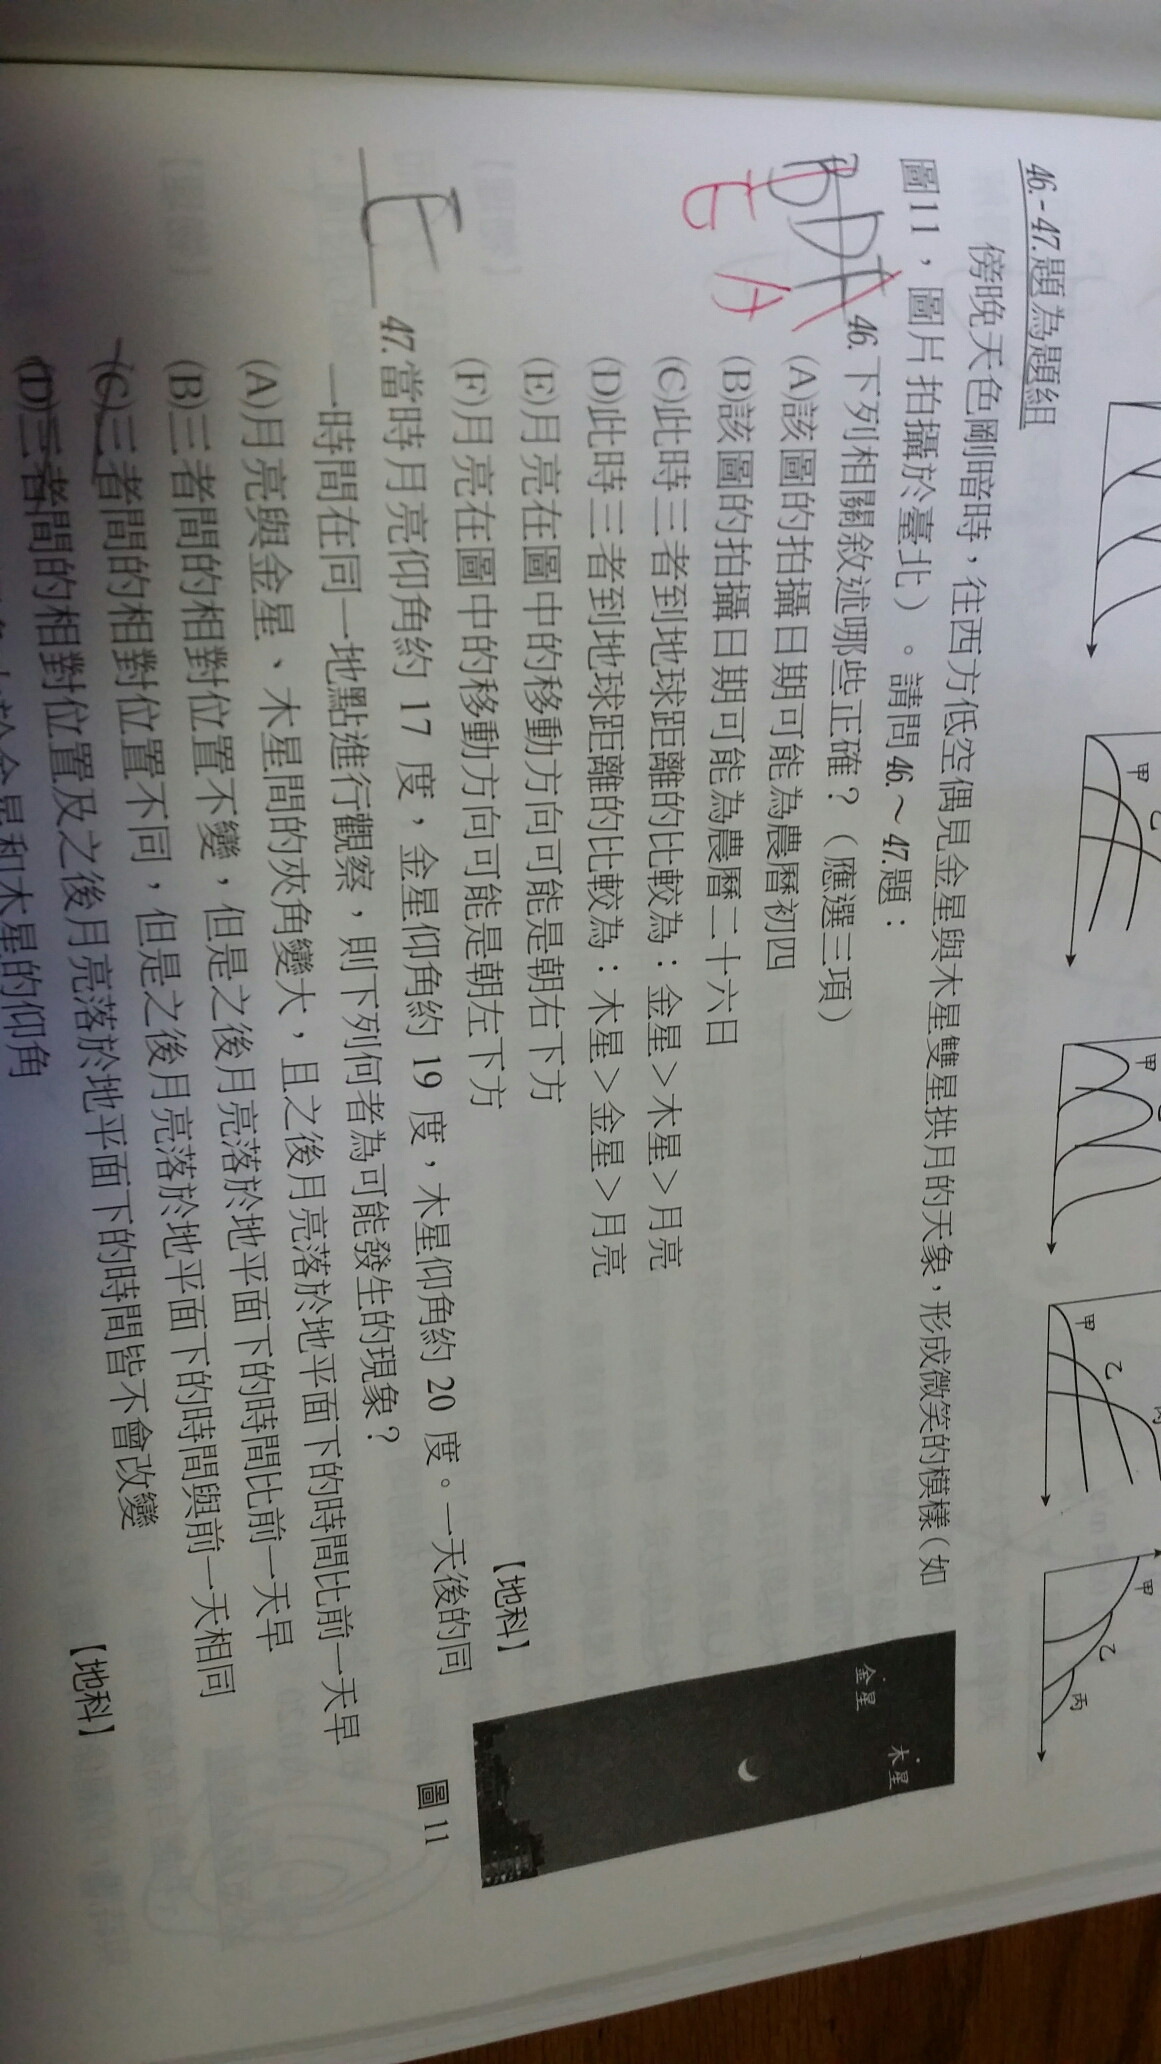 甲
乙
甲
甲
乙
丙
甲
乙
丙
46.-47.題為題組
傍晚天色剛暗時，往西方低空偶見金星與木星雙星拱月的天象，形成微笑的模樣（如
圖11，圖片拍攝於臺北）。請問46.～47.題：
BDA
EA
E
46.下列相關敘述哪些正確？（應選三項）
(A)該圖的拍攝日期可能為農曆初四
(B)該圖的拍攝日期可能為農曆二十六日
(C)此時三者到地球距離的比較為：金星＞木星＞月亮
(D)此時三者到地球距離的比較為：木星＞金星＞月亮
(E)月亮在圖中的移動方向可能是朝右下方
(F)月亮在圖中的移動方向可能是朝左下方
【地科】
金星
木星
圖 11
E
47.當時月亮仰角約 17 度，金星仰角約 19 度，木星仰角約 20 度。一天後的同
一時間在同一地點進行觀察，則下列何者為可能發生的現象？
(A)月亮與金星、木星間的夾角變大，且之後月亮落於地平面下的時間比前一天早
(B)三者間的相對位置不變，但是之後月亮落於地平面下的時間比前一天早
(C)三者間的相對位置不同，但是之後月亮落於地平面下的時間與前一天相同
(D)三者間的相對位置及之後月亮落於地平面下的時間皆不會改變
於金星和木星的仰角
【地科】